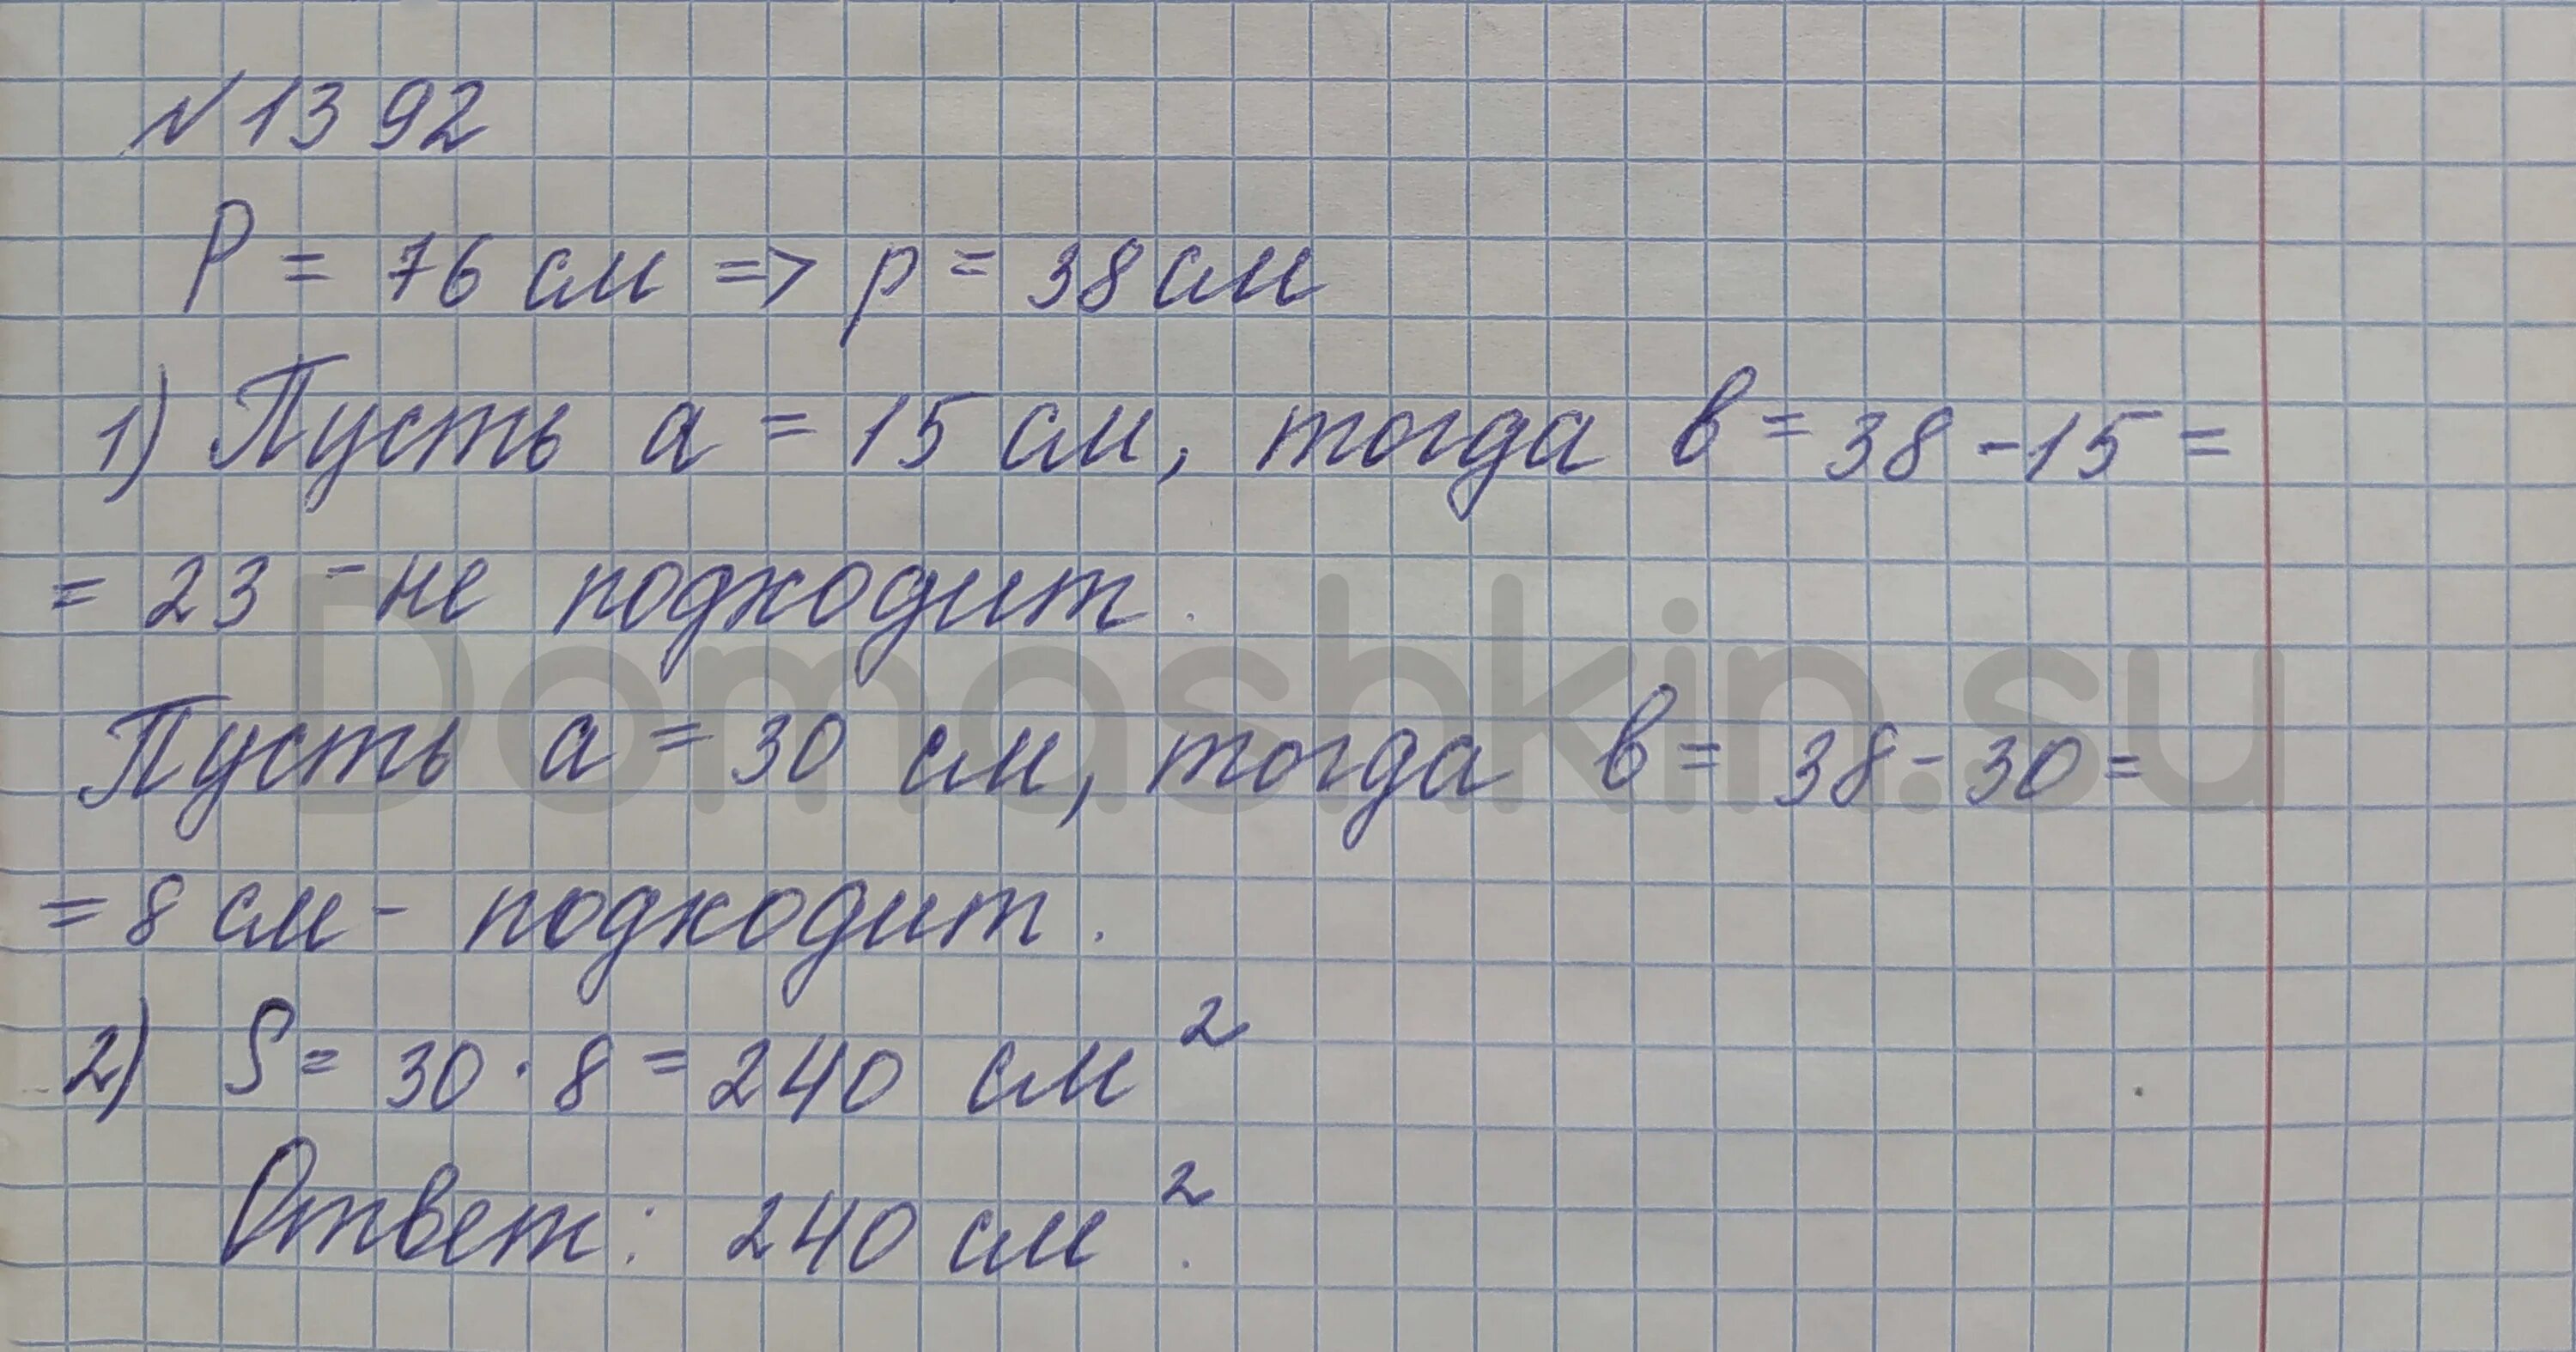 №1392
P = 76 см => p = 38 см
1) Пусть a = 15 см, тогда в = 38 - 15 =
= 23 - не подходит.
Пусть a = 30 см, тогда в = 38 - 30 =
= 8 см - подходит.
2) S = 30 · 8 = 240 см²
Ответ: 240 см².
Domashkin.su